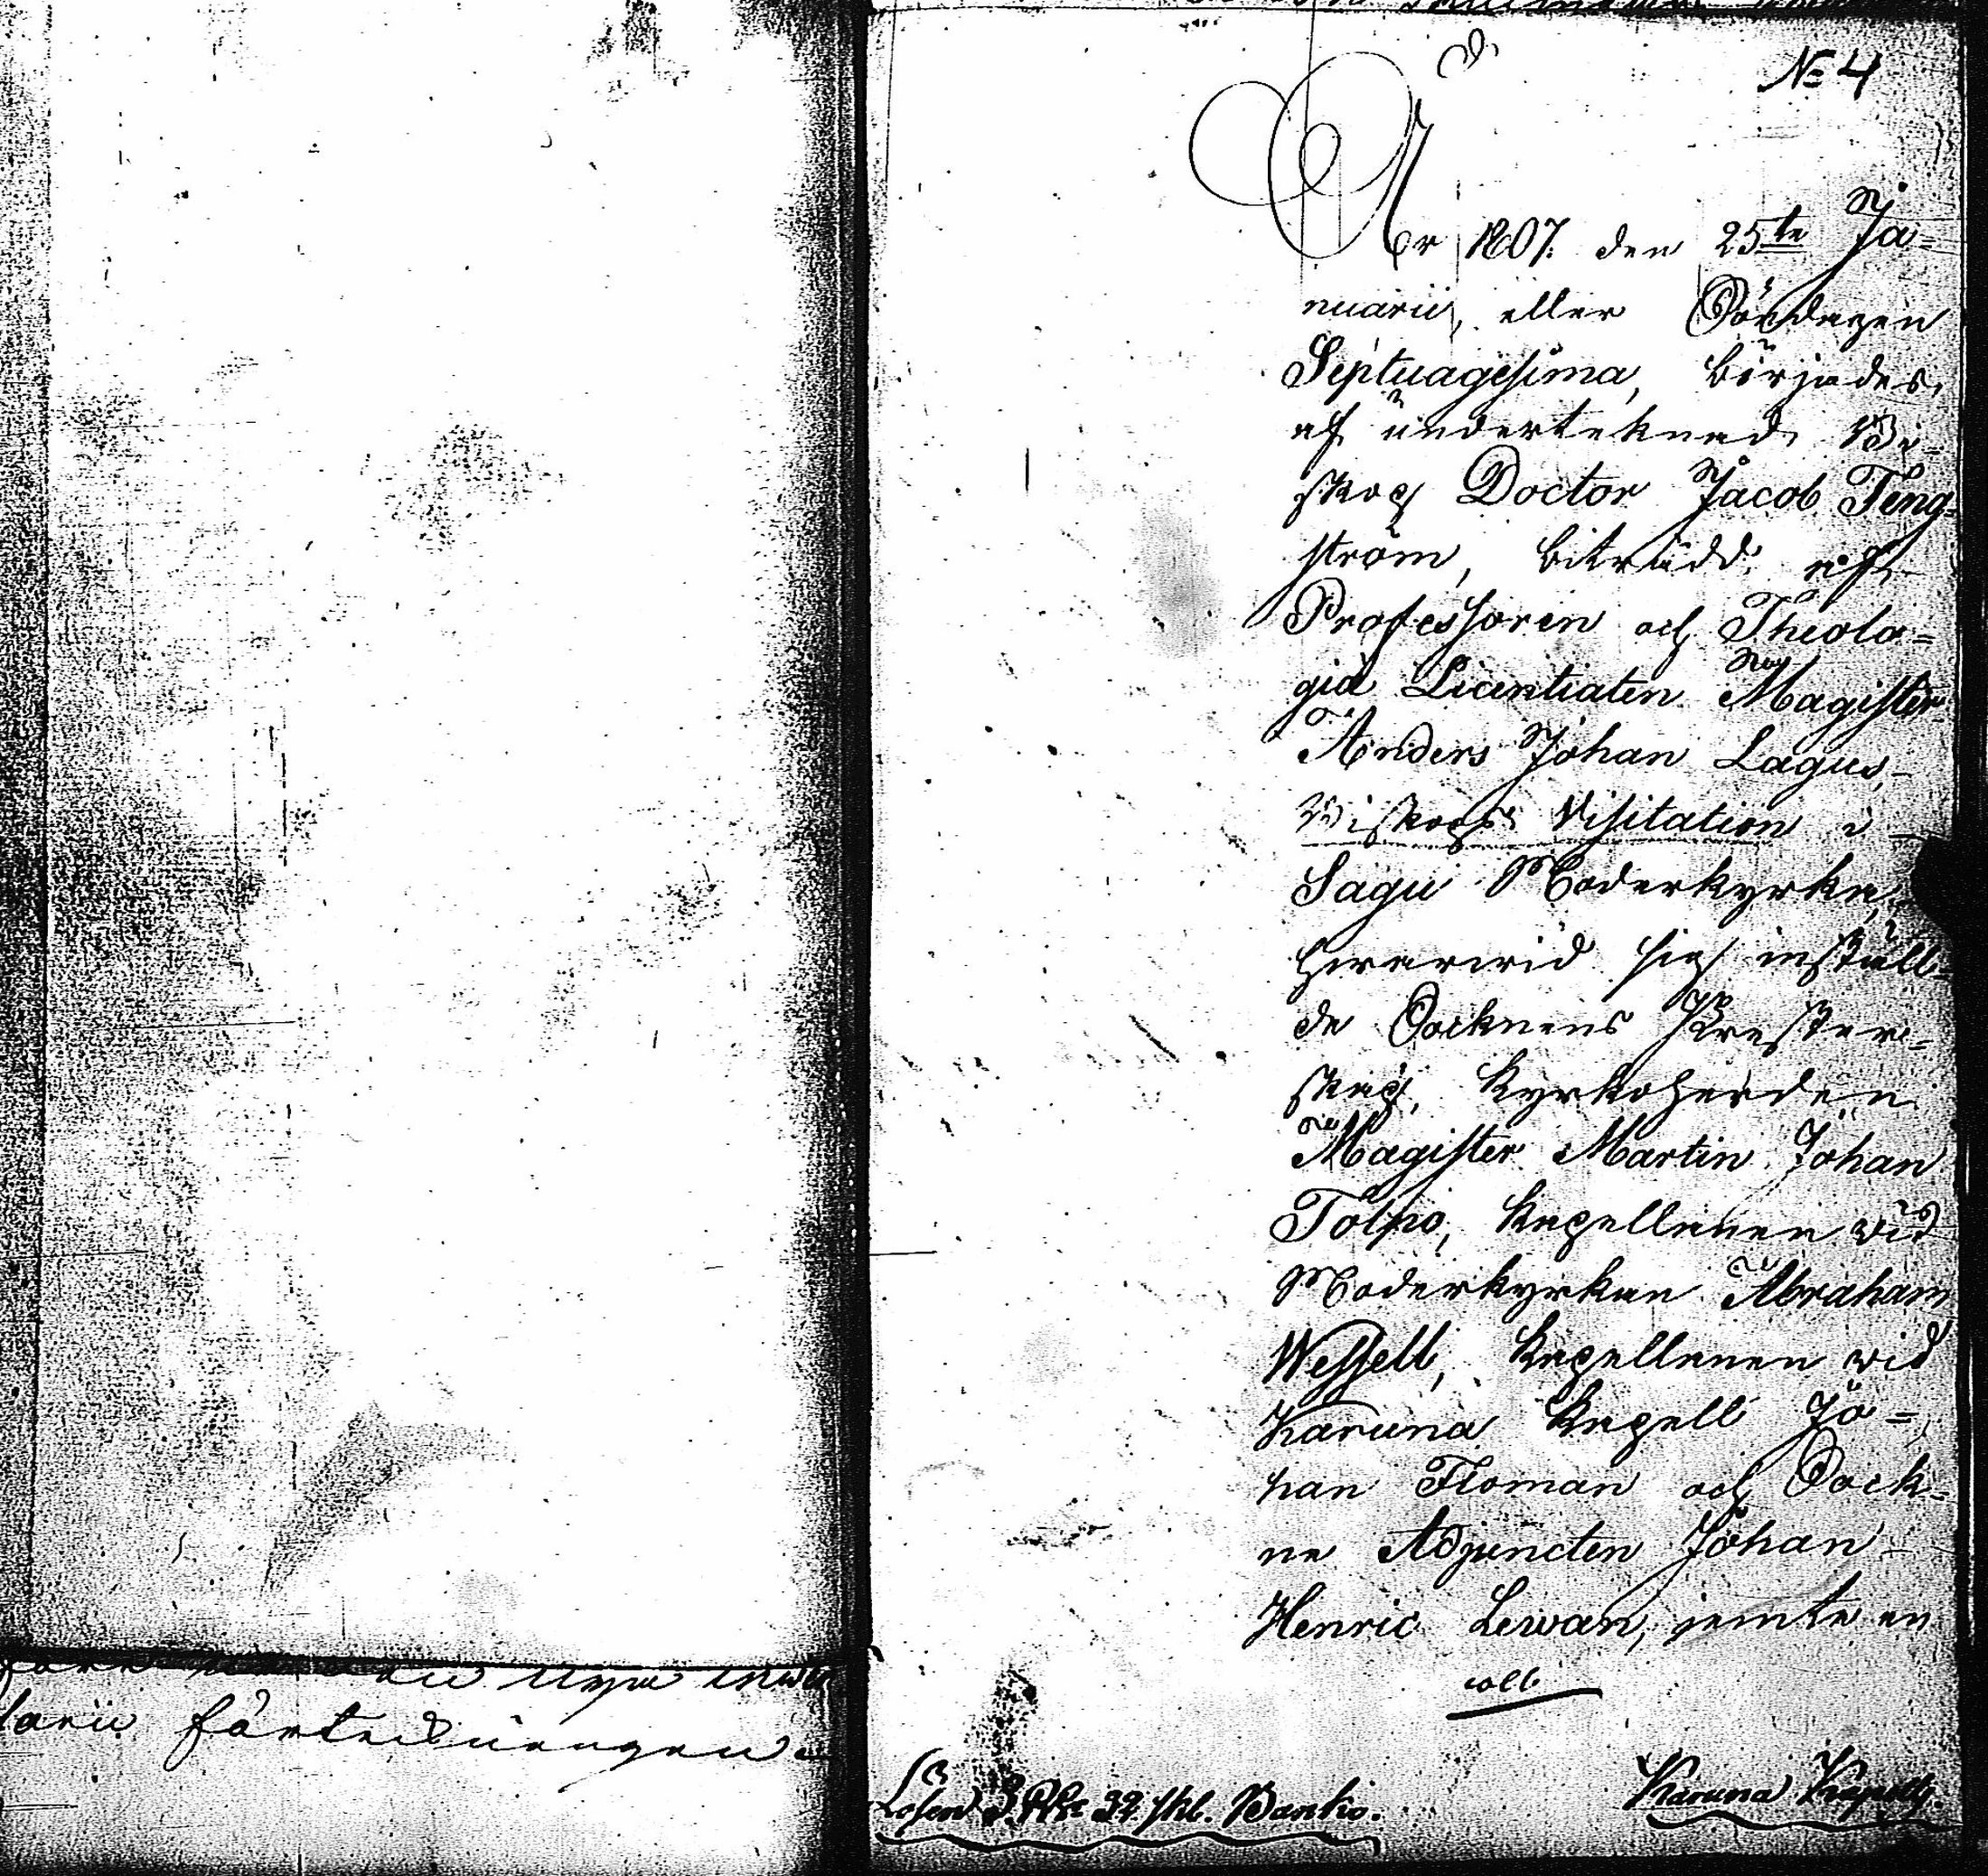 No 4
År 1807. den 25te Ja=
nuarii, eller Söndagen
Septuagesima, börjades,
af underteknad Bi-
skop Doctor Jacob Teng-
ström, biträdd af
Professoren och Theolo=
giæ Licentiaten Magister
Anders Johan Lagus,
Biskops Visitation i
Sagu Moderkyrka,
hvarvid sig inställ-
de Socknens Prester-
skap, Kyrkoherden
Magister Martin Johan
Tolpo, Kapellanen vid
Moderkyrkan Abraham
Wessell, Kapellanen vid
Karuna Kapell Jo=
han Floman och Sock-
ne Adjuncten Johan
Henric Lewan, jemte en
coll.
Lösen 3 Rdr 32 skl. Banko.
Karuna
larii förteckningen